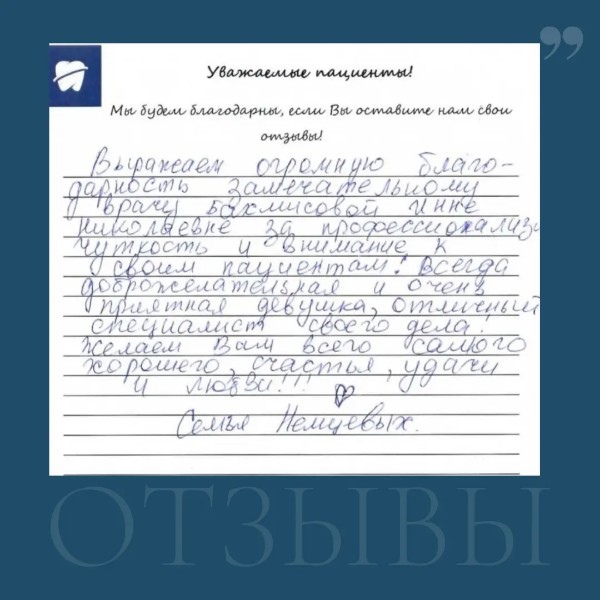 ”
Уважаемые пациенты!
Мы будем благодарны, если Вы оставите нам свои
отзывы!
Выражаем огромную благо-
дарность замечательному
врачу Бакмисовой Инне
Николаевне за профессионализм
чуткость и внимание к
своим пациентам! Всегда
доброжелательная и очень
приятная девушка, отличный
специалист своего дела!
Желаем Вам всего самого
хорошего, счастья, удачи
и любви!!!
Семья Немцевых.
ОТЗЫВЫ